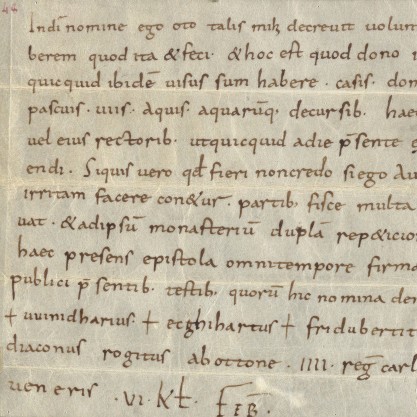 44
Indi nomine ego oto talis mihi decrevit volun
berem quod ita & feci · & hoc est quod dono
quicquid ibidē visus sum habere · casis · don
pascuis · viis · Aquis · aquarūq; decursib · hae
vel eius rectorib · utquicquid adie p̄sente
endi · Siquis vero qđ fieri noncredo si ego Au
irritam facere con&ur · partib; fisce multa
uat · & adipsū monasteriū duplā rep&icio
haec presens epistola omnitempore firma
publici p̄sentib · testib · quorū hic nomina
+ uuinidharius · + ecghihartus + fridubertit
diaconus rogitus abottone · IIII · reg̅ carl
ueneris · VI · kł · FEB̅ ·